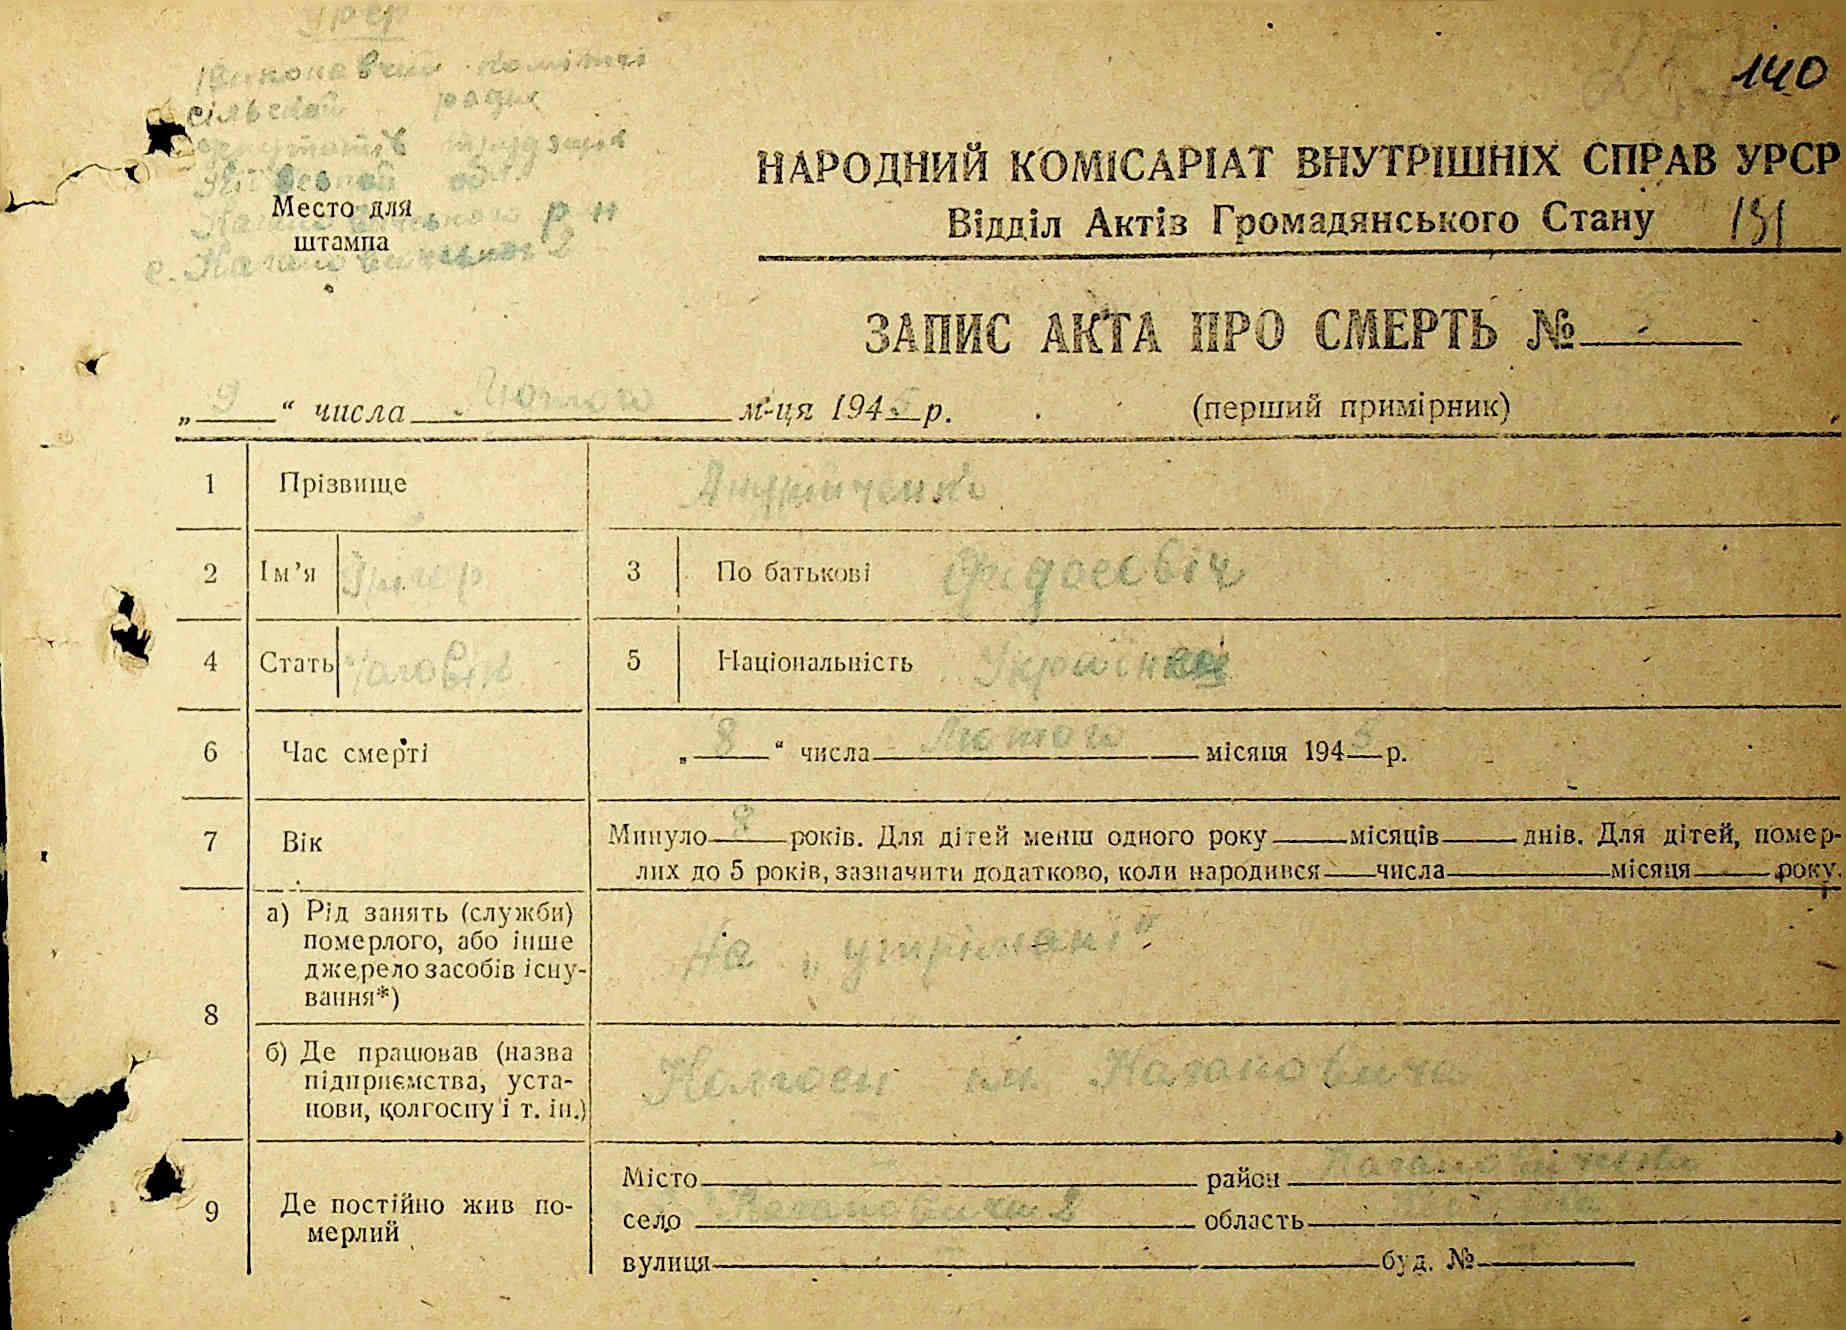 УРСР
Виконавчий комітет
сільської ради
депутатів трудящих
Київської обл.
р-н
с. Кагановичі 2
Место для
штампа
140
НАРОДНИЙ КОМІСАРІАТ ВНУТРІШНІХ СПРАВ УРСР
Відділ Актів Громадянського Стану
ЗАПИС АКТА ПРО СМЕРТЬ № 5
„ 9 “ числа Лютого м-ця 1945 р. (перший примірник)
1 Прізвище
2 Ім’я Григор 3 По батькові
4 Стать Чоловік 5 Національність Українец
6 Час смерті „ 8 “ числа Лютого місяця 1945 р.
7 Вік Минуло 8 років. Для дітей менш одного року місяців днів. Для дітей, помер-
лих до 5 років, зазначити додатково, коли народився числа місяця року.
8 а) Рід занять (служби)
померлого, або інше
джерело засобів існу-
вання*)
На „утрімані“
б) Де працював (назва
підприємства, уста-
нови, колгоспу і т. ін.)
Колгосп ім Кагановича
9 Де постійно жив по-
мерлий
Місто район
село Кагановичи 2 область
вулиця буд. №